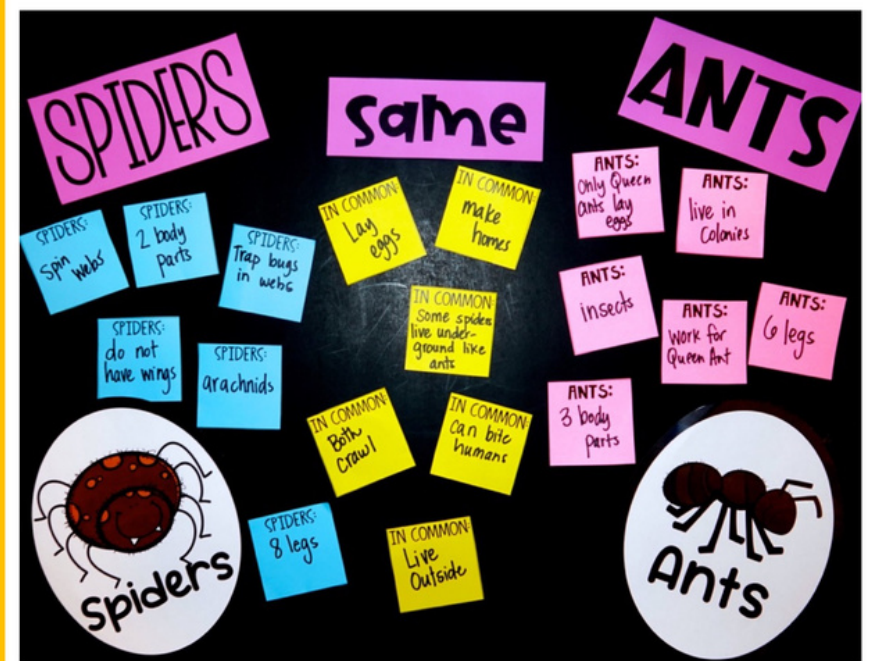 SPIDERS
Same
ANTS
SPIDERS:
Spin
webs
SPIDERS:
2 body
parts
SPIDERS:
Trap bugs
in webs
SPIDERS:
do not
have wings
SPIDERS:
arachnids
SPIDERS:
8 legs
IN COMMON:
Lay
eggs
IN COMMON:
make
homes
IN COMMON:
Some spiders
live under-
ground like
ants
IN COMMON:
Both
Crawl
IN COMMON:
Can bite
humans
IN COMMON:
Live
Outside
ANTS:
Only Queen
ants lay
eggs
ANTS:
live in
Colonies
ANTS:
insects
ANTS:
work for
Queen Ant
ANTS:
6 legs
ANTS:
3 body
parts
Spiders
Ants